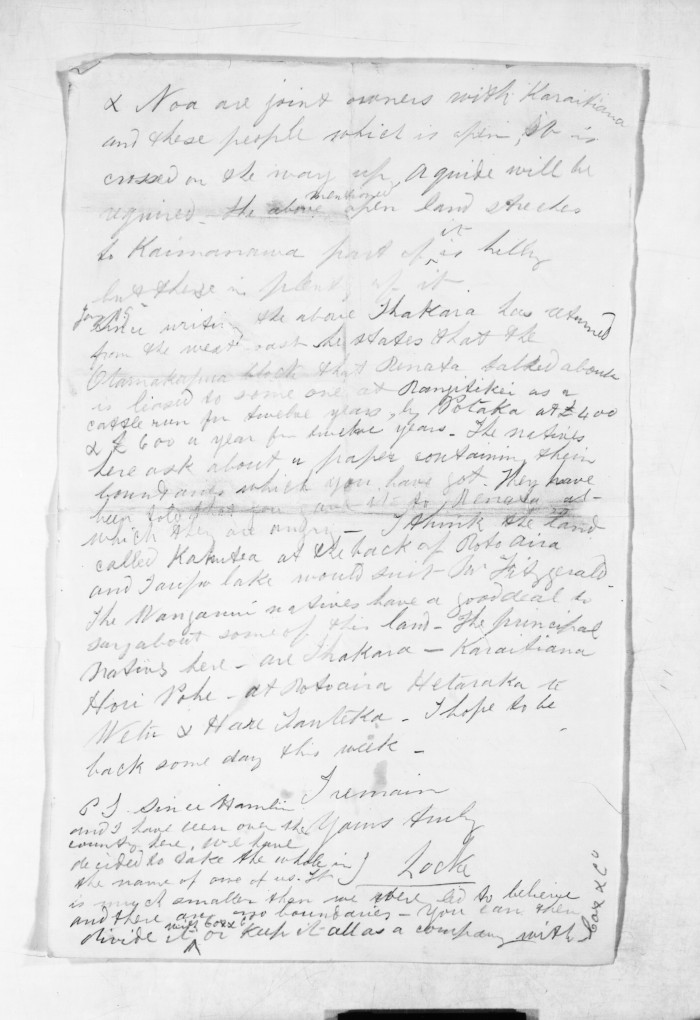 & Noa are joint owners with Karaitiana
and these people which is open, it is
crossed on the way up, A guide will be
required - the above mentioned open land streches
to Kaimanawa part of it is hilly
but there is plenty of it
Jany 19
Since writing the above Ihakara has returned
from the west coast he states that the
Otamakapua block that Renata talked about
is leased to some one at Rangitikei as a
cattle run for twelve years, by Potaka at £400
& £600 a year for twelve years - The natives
here ask about a paper containing their
boundaries which you have got. They have
been told that you gave it to Renata at
which they are angry - I think the land
called Kakutea at the back of Rotoaira
and Taupo lake would suit Mr Fitzgerald -
The Wanganui natives have a good deal to
say about some of this land - The principal
natives here - are Ihakara - Karaitiana
Hori Pohe - at Rotoaira Hetaraka te
Wetu & Hare Tauteka - I hope to be
back some day this week -
I remain
Yours truly
Locke
P.S. Since Hamlin
and I have been over the
country here, we have
decided to take the whole in
the name of one of us. It
is much smaller than we were led to believe
and there are no boundaries - You can then
divide it with Cox & Co or keep it all as a company with
Cox & Co